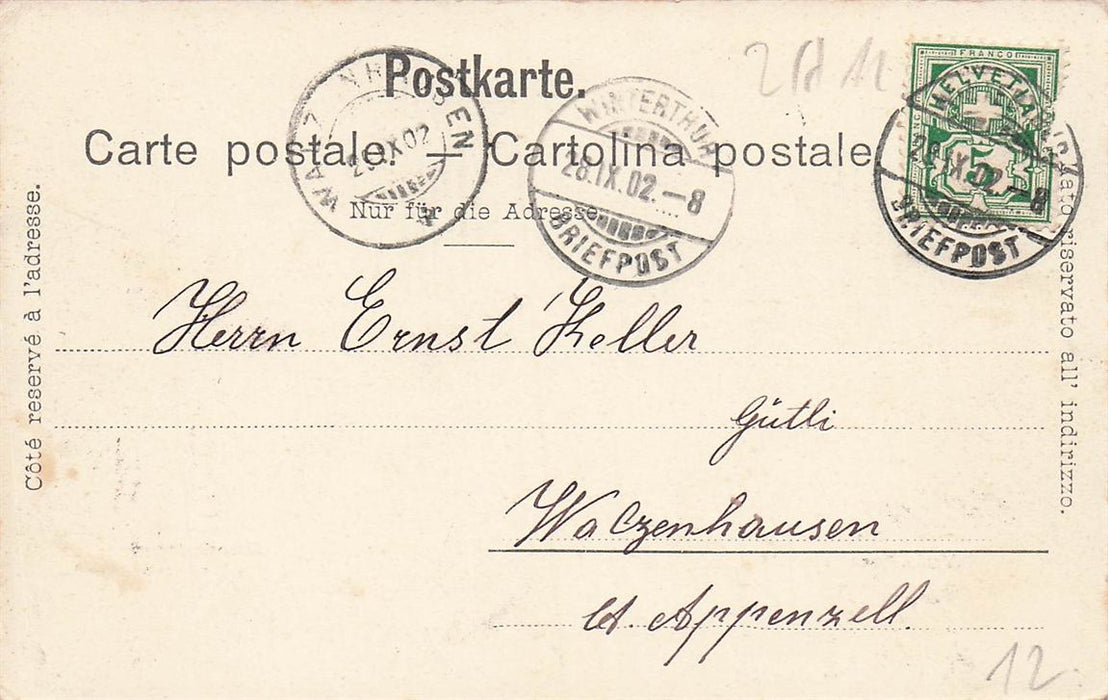 Postkarte.
Carte postale. — Cartolina postale
Nur für die Adresse.
Côté reservé à l'adresse.
riservato all' indirizzo.
FRANCO
HELVETIA
5
WINTERTHUR
28.IX.02.–8
BRIEFPOST
28.IX.02.–8
BRIEFPOST
IX 02
Herrn Ernst Keller
Gütli
Walzenhausen
Ct. Appenzell.
12